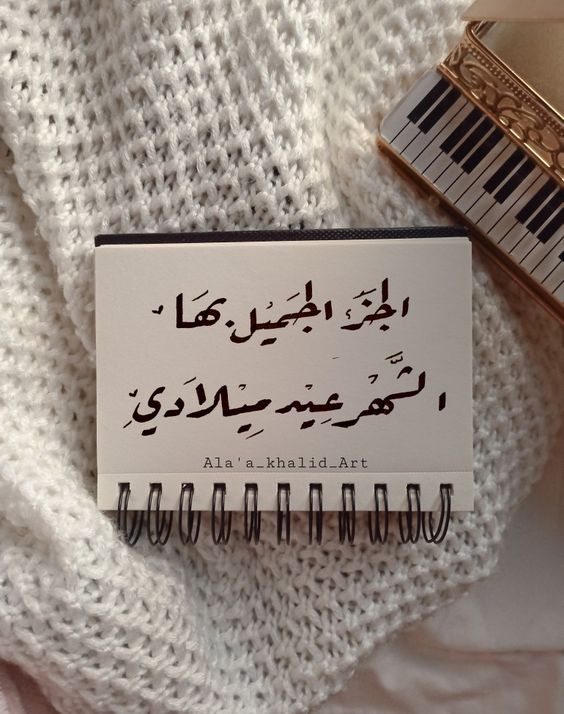 الجزَء الجَميْل بهَا
الشَّهْر عِيْد مِيْلادَيِ
Ala'a_khalid_Art